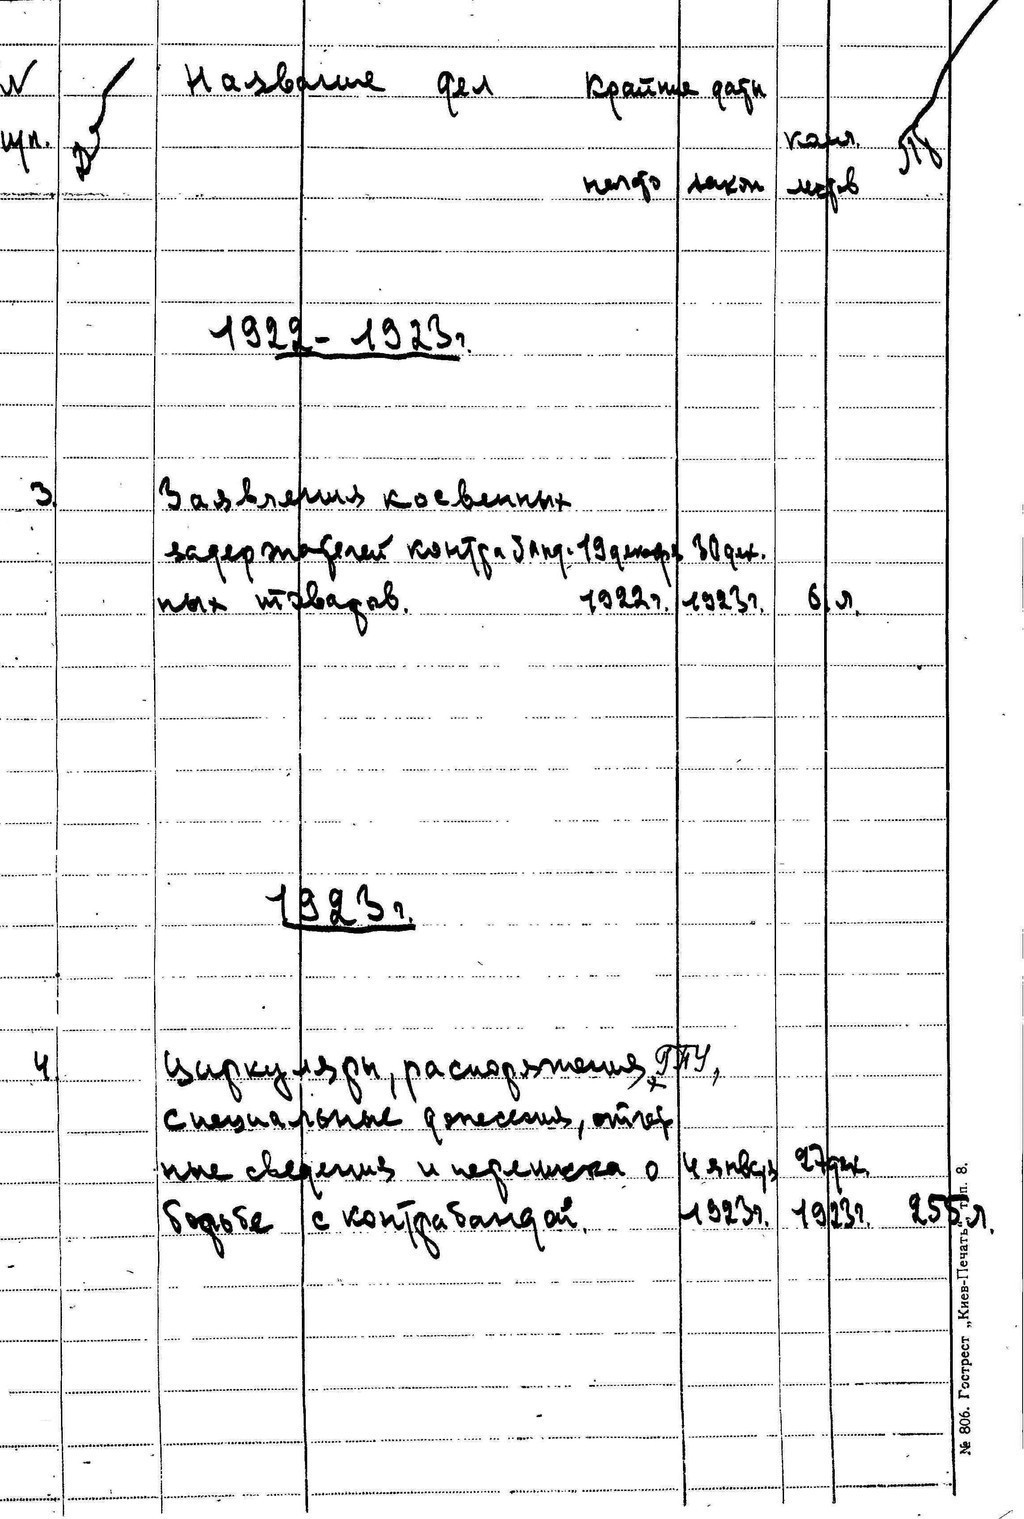 N Название дел Крайние даты
п/п. колич.
начало закон листов
1922 - 1923 г.
3. Заявления косвенных
задержателей контрабанд- 19 декабря 30 дек.
ных товаров. 1922 г. 1923 г. 6 л.
1923 г.
4. Циркуляры, распоряжения ГПУ,
специальные донесения, отчет
ные сведения и переписка о 4 январ 27 дек.
борьбе с контрабандой. 1923 г. 1923 г. 255 л.
№ 806. Гострест „Киев-Печать“ тп. 8.